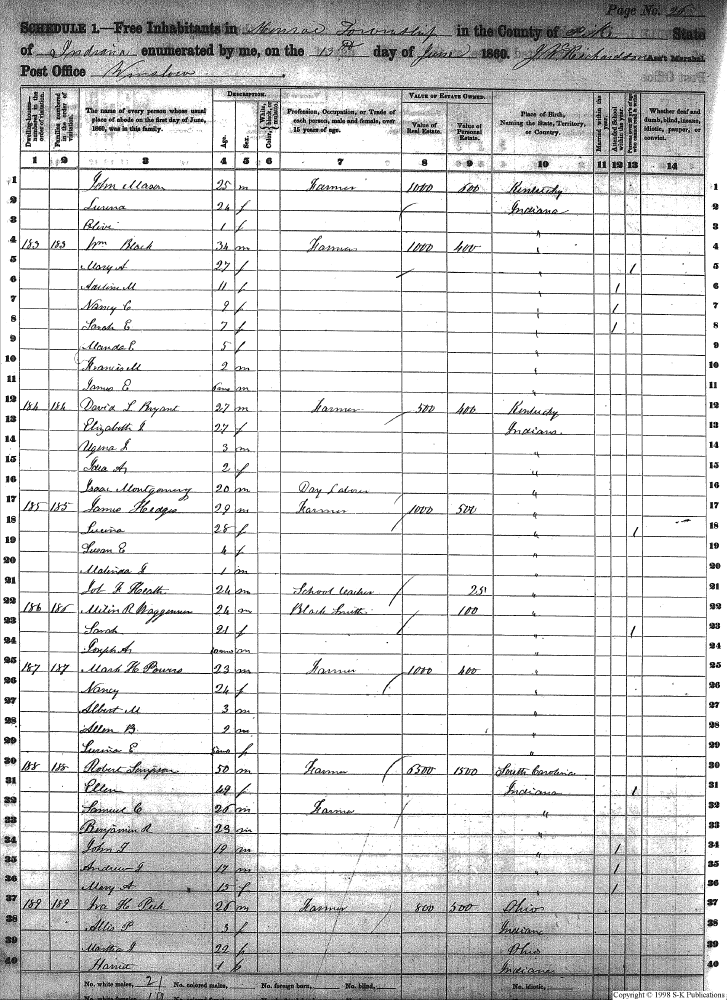 Page No. 25
SCHEDULE 1.—Free Inhabitants in Monroe Township in the County of Pike State
of Indiana enumerated by me, on the 13th day of June 1860. J W Richardson Ass't Marshal.
Post Office Winslow
Dwelling-houses—numbered in the order of visitation.
Families numbered in the order of visitation.
The name of every person whose usual place of abode on the first day of June, 1860, was in this family.
DESCRIPTION.
Age.
Sex.
Color, White, black, or mulatto.
Profession, Occupation, or Trade of each person, male and female, over 15 years of age.
VALUE OF ESTATE OWNED.
Value of Real Estate.
Value of Personal Estate.
Place of Birth, Naming the State, Territory, or Country.
Married within the year.
Attended School within the year.
Whether deaf and dumb, blind, insane, idiotic, pauper, or convict.
1 2 3 4 5 6 7 8 9 10 11 12 13 14
1 John Mason 25 m Farmer 1000 600 Kentucky 1
2 Lurena 24 f Indiana 2
3 Olive 1 f " 3
4 183 183 Wm Black 34 m Farmer 1000 400 " 4
5 Mary A 27 f " / 5
6 Adeline M 11 f " / 6
7 Nancy C 9 f " / 7
8 Sarah E 7 f " / 8
9 Manda E 5 f " 9
10 Francis M 2 m " 10
11 James E 6mo m " 11
12 184 184 David L Bryant 27 m Farmer 500 400 Kentucky 12
13 Elizabeth J 27 f Indiana 13
14 3 m " 14
15 A 2 f " 15
16 Isaac Montgomery 20 m Day Labor " 16
17 185 185 James Hedges 29 m Farmer 1000 500 " 17
18 Lucina 28 f " / 18
19 Susan E 4 f " 19
20 Malinda J 1 m " 20
21 Job F Heath 24 m School teacher 25 " 21
22 186 186 R Waggonner 24 m Black Smith 100 " 22
23 Sarah 21 f " / 23
24 Joseph A 10mo m " 24
25 187 187 Mark H Powers 23 m Farmer 1000 400 " 25
26 Nancy 24 f " 26
27 Albert M 3 m " 27
28 Allen B 2 m " 28
29 Lurena E f " 29
30 188 188 Robert Simpson 50 m Farmer 6500 1500 South Carolina 30
31 Ellen 49 f Indiana / 31
32 Samuel C 26 m Farmer " 32
33 Benjamin R 23 m 33
34 John T 19 m " / 34
35 Andrew J 17 m " / 35
36 Mary A 15 f " / 36
37 189 189 Ira H Peck 26 m Farmer 800 300 Ohio 37
38 P 3 f Indiana 38
39 Martha J 22 f Ohio 39
40 Harriet 1 f Indiana 40
No. white males, 21 No. colored males, No. foreign born, No. blind, No. idiotic, No. convicts,
Copyright © 1998 S-K Publications